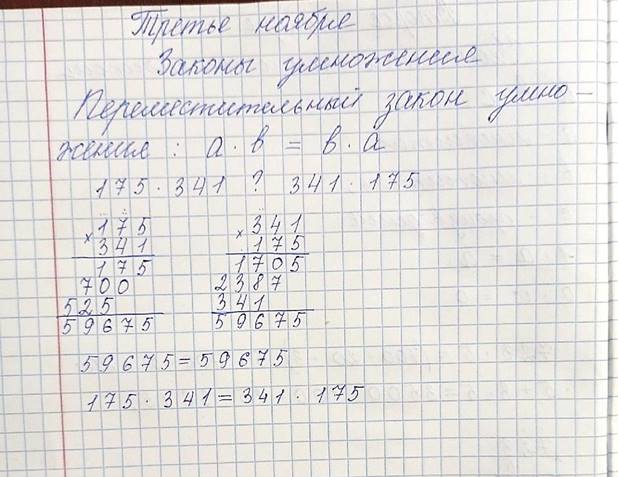 Третье ноября
Законы умножения
Переместительный закон умно-
жения : а · в = в · а
175 · 341 ? 341 · 175
× 175 × 341
341 175
175 1705
700 2387
525 341
59675 59675
59675 = 59675
175 · 341 = 341 · 175